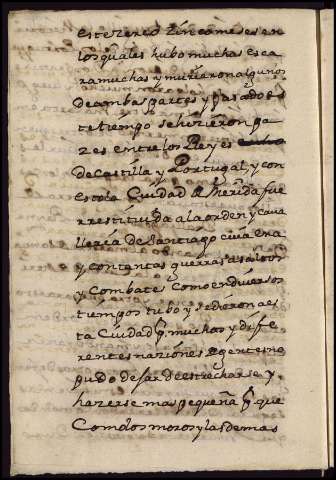 este zerco zinco meses en
los quales hubo muchas esca
ramuchas y murieron algunos
de ambas partes y pasado es
te tiempo se hizieron pa
zes entre los Reyes
de Castilla y Portugal, y con
esto la Ciudad de Merida fue
rrestituida a la orden y cava
lleria de Santiago cuia era
y con tantas guerras asaltos
y Combates Como en diversos
tiempos tubo y se dieron a es
ta Ciudad p. muchas y dife
rentes naziones e gentes no
pudo dejar de estrecharse y
hazerse mas pequeña p. que
Com los moros y las demas